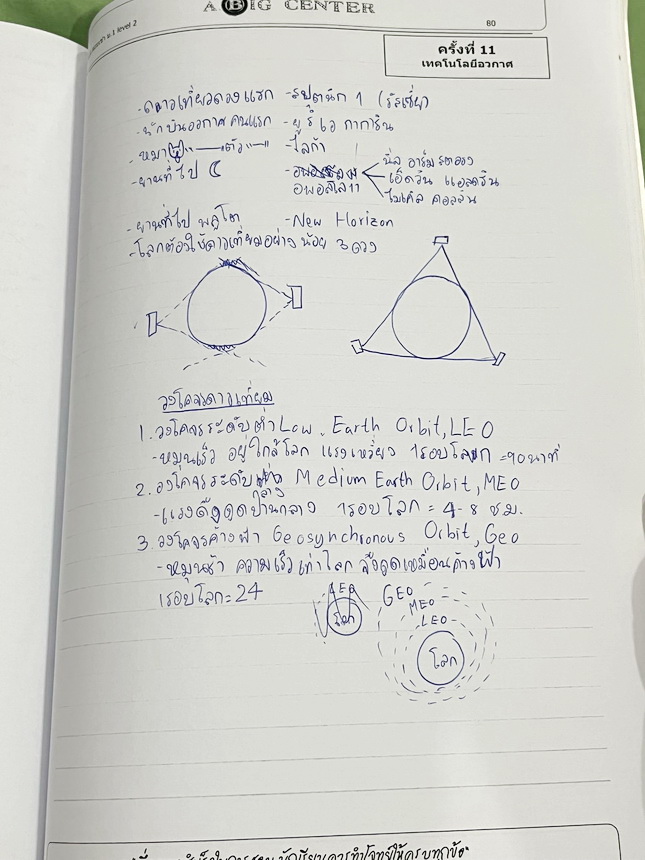 A BIG CENTER
ม.1 level 2
80
ครั้งที่ 11
เทคโนโลยีอวกาศ
-ดาวเทียมดวงแรก -สปุตนิก 1 (รัสเซีย)
-นักบินอวกาศคนแรก -ยูริ เอ กาการิน
-หมา ตัว -ไลก้า
-ยานที่ไป
อพอลโล 11
นีล อาร์มสตรอง
เอ็ดวิน แอลดริน
ไมเคิล คอลลิน
-ยานที่ไป พลูโต -New Horizon
-โลกต้องใช้ดาวเทียมอย่างน้อย 3 ดวง
วงโคจรดาวเทียม
1. วงโคจรระดับต่ำ Low Earth Orbit, LEO
-หมุนเร็ว อยู่ใกล้โลก แรงเหวี่ยง 1รอบโลก =90นาที
2. วงโคจรระดับกลาง Medium Earth Orbit, MEO
-แรงดึงดูดปานกลาง 1รอบโลก = 4-8 ชม.
3. วงโคจรค้างฟ้า Geosynchronous Orbit, Geo
-หมุนช้า ความเร็วเท่าโลก จึงดูดเหมือนค้างฟ้า
1รอบโลก=24
LEO
โลก
GEO
MEO
LEO
โลก